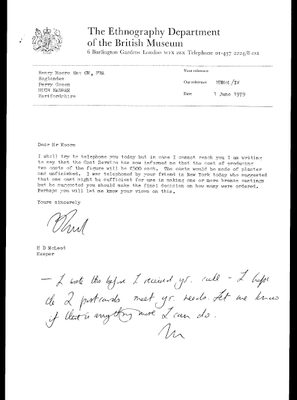 The Ethnography Department
of the British Museum
6 Burlington Gardens London W1X 2EX Telephone 01-437 2224/8
Henry Moore Esq OM, FBA
Hoglands
Perry Green
MUCH HADHAM
Hertfordshire
Your reference
Our reference
Date 1 June 1979
Dear Mr Moore
I shall try to telephone you today but in case I cannot reach you I am writing
to say that the Cast Service has now informed me that the cost of producing
two casts of the figure will be £300 each. The casts would be made of plaster
and unfinished. I was telephoned by your friend in New York today who suggested
that one cast might be sufficient for use in making one or more bronze castings
but he suggested you should make the final decision on how many were ordered.
Perhaps you will let me know your views on this.
Yours sincerely
M D McLeod
Keeper
— I wrote this before I received yr. call - I hope
the 2 postcards meet yr. needs. Let me know
if there is anything more I can do.